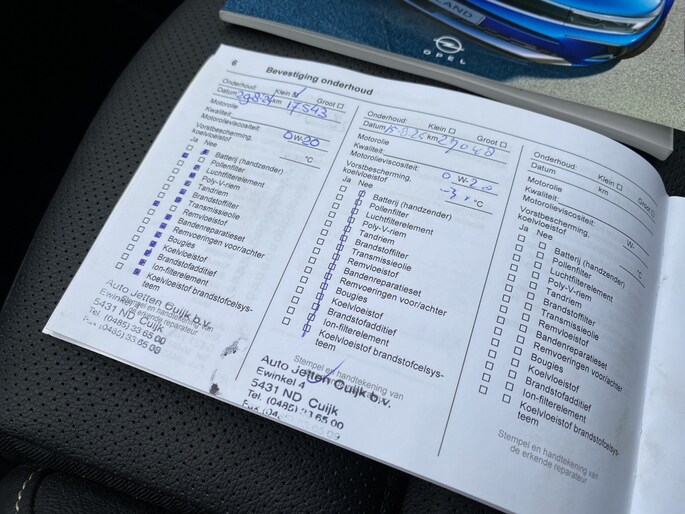 LAND
OPEL
6
Bevestiging onderhoud
Onderhoud: Klein Groot
Datum km 17543
Motorolie
Kwaliteit:
Motorolieviscositeit: 0 W-20
Vorstbescherming,
koelvloeistof °C
Ja Nee
Batterij (handzender)
Pollenfilter
Luchtfilterelement
Poly-V-riem
Tandriem
Brandstoffilter
Transmissieolie
Remvloeistof
Bandenreparatieset
Remvoeringen voor/achter
Bougies
Koelvloeistof
Brandstofadditief
Ion-filterelement
Koelvloeistof brandstofcelsys-
teem
Stempel en handtekening van
de erkende reparateur
Auto Jetten Cuijk b.v.
Ewinkel 4
5431 ND Cuijk
Tel. (0485) 33 65 00
Fax (0485) 33 65 09
Onderhoud: Klein Groot
Datum km 29048
Motorolie
Kwaliteit:
Motorolieviscositeit: 0 W-20
Vorstbescherming,
koelvloeistof °C
Ja Nee
Batterij (handzender)
Pollenfilter
Luchtfilterelement
Poly-V-riem
Tandriem
Brandstoffilter
Transmissieolie
Remvloeistof
Bandenreparatieset
Remvoeringen voor/achter
Bougies
Koelvloeistof
Brandstofadditief
Ion-filterelement
Koelvloeistof brandstofcelsys-
teem
Stempel en handtekening van
de erkende reparateur
Auto Jetten Cuijk b.v.
Ewinkel 4
5431 ND Cuijk
Tel. (0485) 33 65 00
Onderhoud: Klein Groot
Datum km
Motorolie
Kwaliteit:
Motorolieviscositeit: W-
Vorstbescherming,
koelvloeistof °C
Ja Nee
Batterij (handzender)
Pollenfilter
Luchtfilterelement
Poly-V-riem
Tandriem
Brandstoffilter
Transmissieolie
Remvloeistof
Bandenreparatieset
Remvoeringen voor/achter
Bougies
Koelvloeistof
Brandstofadditief
Ion-filterelement
Koelvloeistof brandstofcelsys-
teem
Stempel en handtekening van
de erkende reparateur